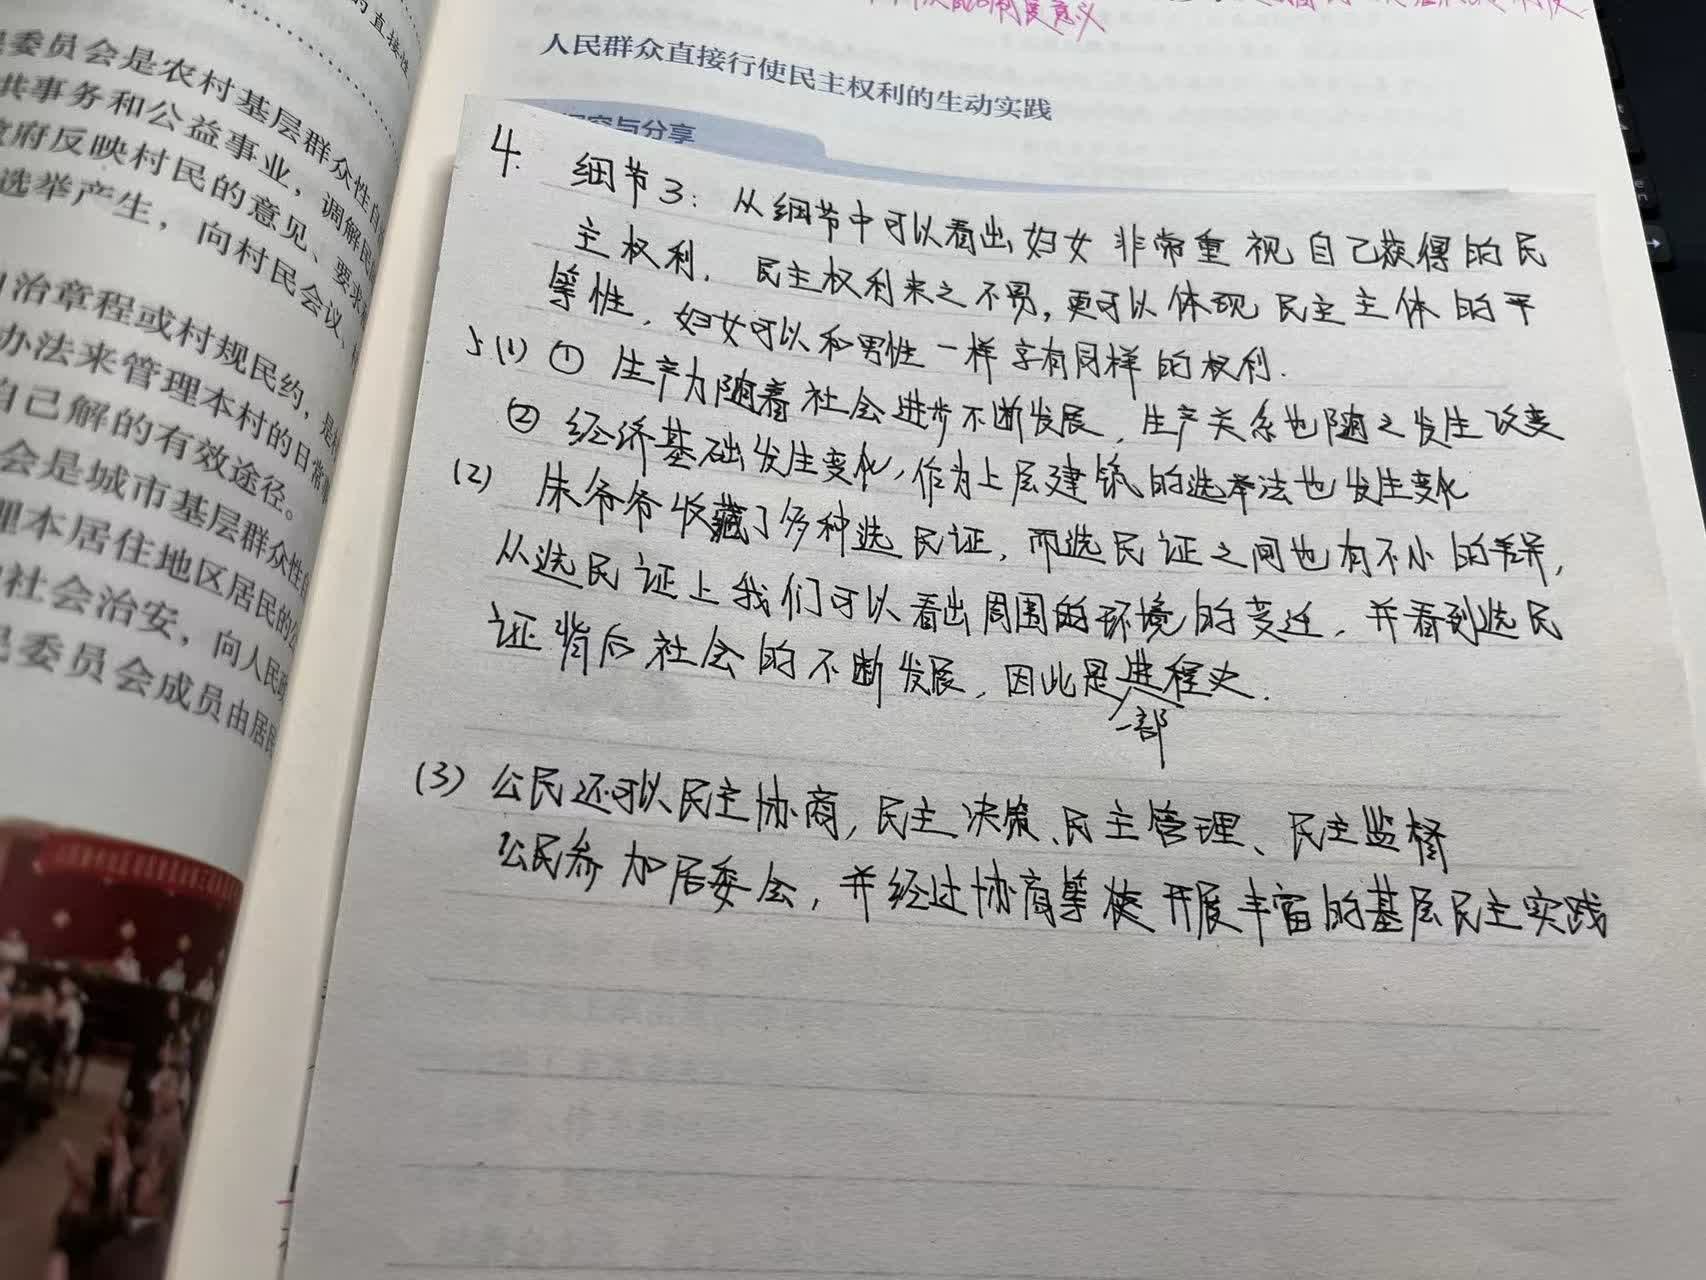 的直接性
委员会是农村基层群众性自
共事务和公益事业，调解民
府反映村民的意见、要求
选举产生，向村民会议、
治章程或村规民约，是
办法来管理本村的日常事
自己解的有效途径。
会是城市基层群众性自
理本居住地区居民的公
社会治安，向人民政
委员会成员由居民
制度意义
人民群众直接行使民主权利的生动实践
探究与分享
4. 细节3：从细节中可以看出妇女非常重视自己获得的民
主权利．民主权利来之不易，更可以体现民主主体的平
等性，妇女可以和男性一样享有同样的权利．
5(1) ① 生产力随着社会进步不断发展，生产关系也随之发生改变
② 经济基础发生变化，作为上层建筑的选举法也发生变化
(2) 朱爷爷收藏了多种选民证，而选民证之间也有不小的差异，
从选民证上我们可以看出周围的环境的变迁，并看到选民
证背后社会的不断发展，因此是进程史．
一部
(3) 公民还可以民主协商，民主决策、民主管理、民主监督
公民参加居委会，并经过协商等 开展丰富的基层民主实践